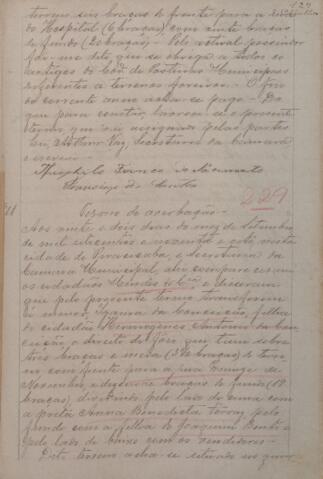 129
terreno seis braças de frente para a rua
do Hospital (6 braças), com vinte braças
de fundo (20 braças) - Pelo actual possuidor
foi-me dito, que se obriga a todos os
artigos do Cod. de Posturas Municipaes
referentes a terrenos foreiros - O fôro
do corrente anno acha-se pago - Do
que para constar, lavrou-se o presente
termo, que vai assignado pelas partes
Eu, Vaz, Secretario da Camara
o escrevi
Theophilo Franco do Nascimento
Francisco dos Santos
229
Termo de averbação -
Aos vinte e dois dias do mez de Setembro
de mil oitocentos e noventa e oito, nesta
cidade de Piracicaba, e Secretaria da
Camara Municipal, ahi compareceram
os cidadãos Mendes & Cia e disseram
que pelo presente termo transferem
á menor Ignara da Conceição, filha
do cidadão Hermogenes Antonio da Con-
ceição, o direito de fôro que tem sobre
três braças e meia (3½ braças) de terre-
no, com frente para a rua Quinze de
Novembro, e dezoito braças de fundo (18
braças), dividindo pelo lado de cima com
a preta Anna Benedicta, pelo
fundo com a filha de Joaquim Bento e
pelo lado de baixo com os vendedores -
Este terreno acha-se situado no quar-